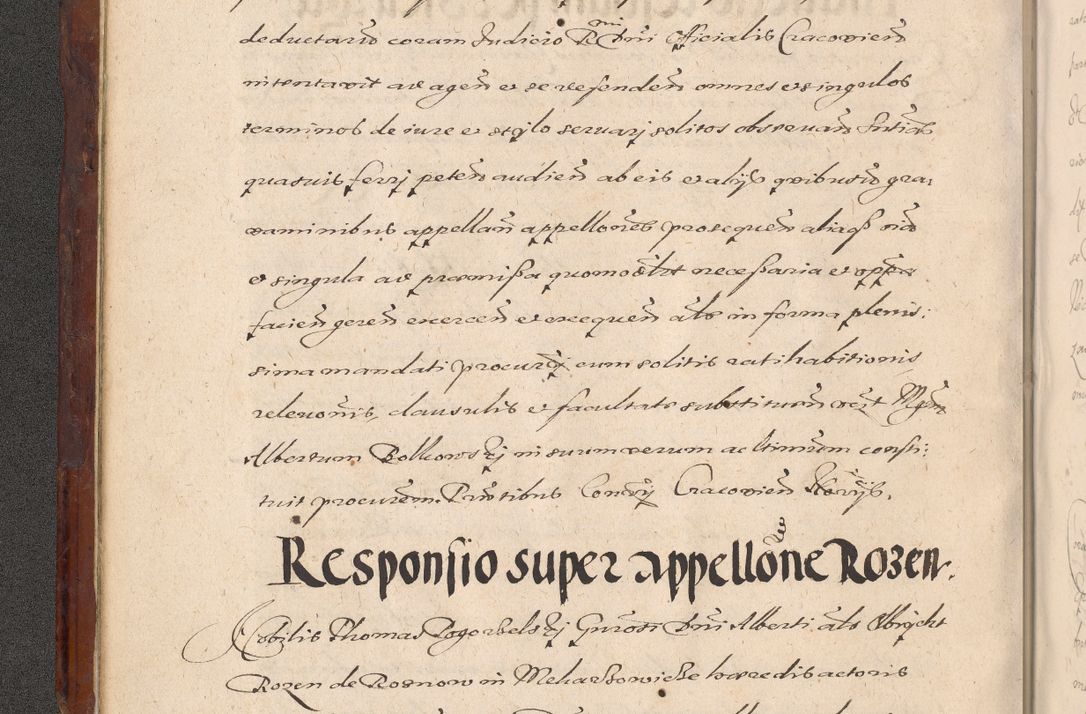 deductario coram Judicio Rmi Dni Officialis Cracovien
intentavit ad agen et se defenden omnes et singulos
terminos de iure et stylo servari solitos observan Sntias
quasvis ferri peten audien ab eis et alijs quibusvis gra:
vaminibus appellan appellones prosequen aliaqs oia
et singula ad præmissa quomodlbt necessaria et
facien geren exercen et exequen als in forma plenis:
sima mandati procurij cum solitis ratihabitionis
relevonis, clausulis et facultate substituen vcz Mgcum
Albertum Rolkowskij in suum verum ac ltimum consti:
tuit procurem. Pntibus Cracovien Norijs.
Responsio super appellone Rozen.
Nobilis Thomas Pogorzelskij Dni Alberti als Olbrycht
Rozen de Roznow in hæredis actoris